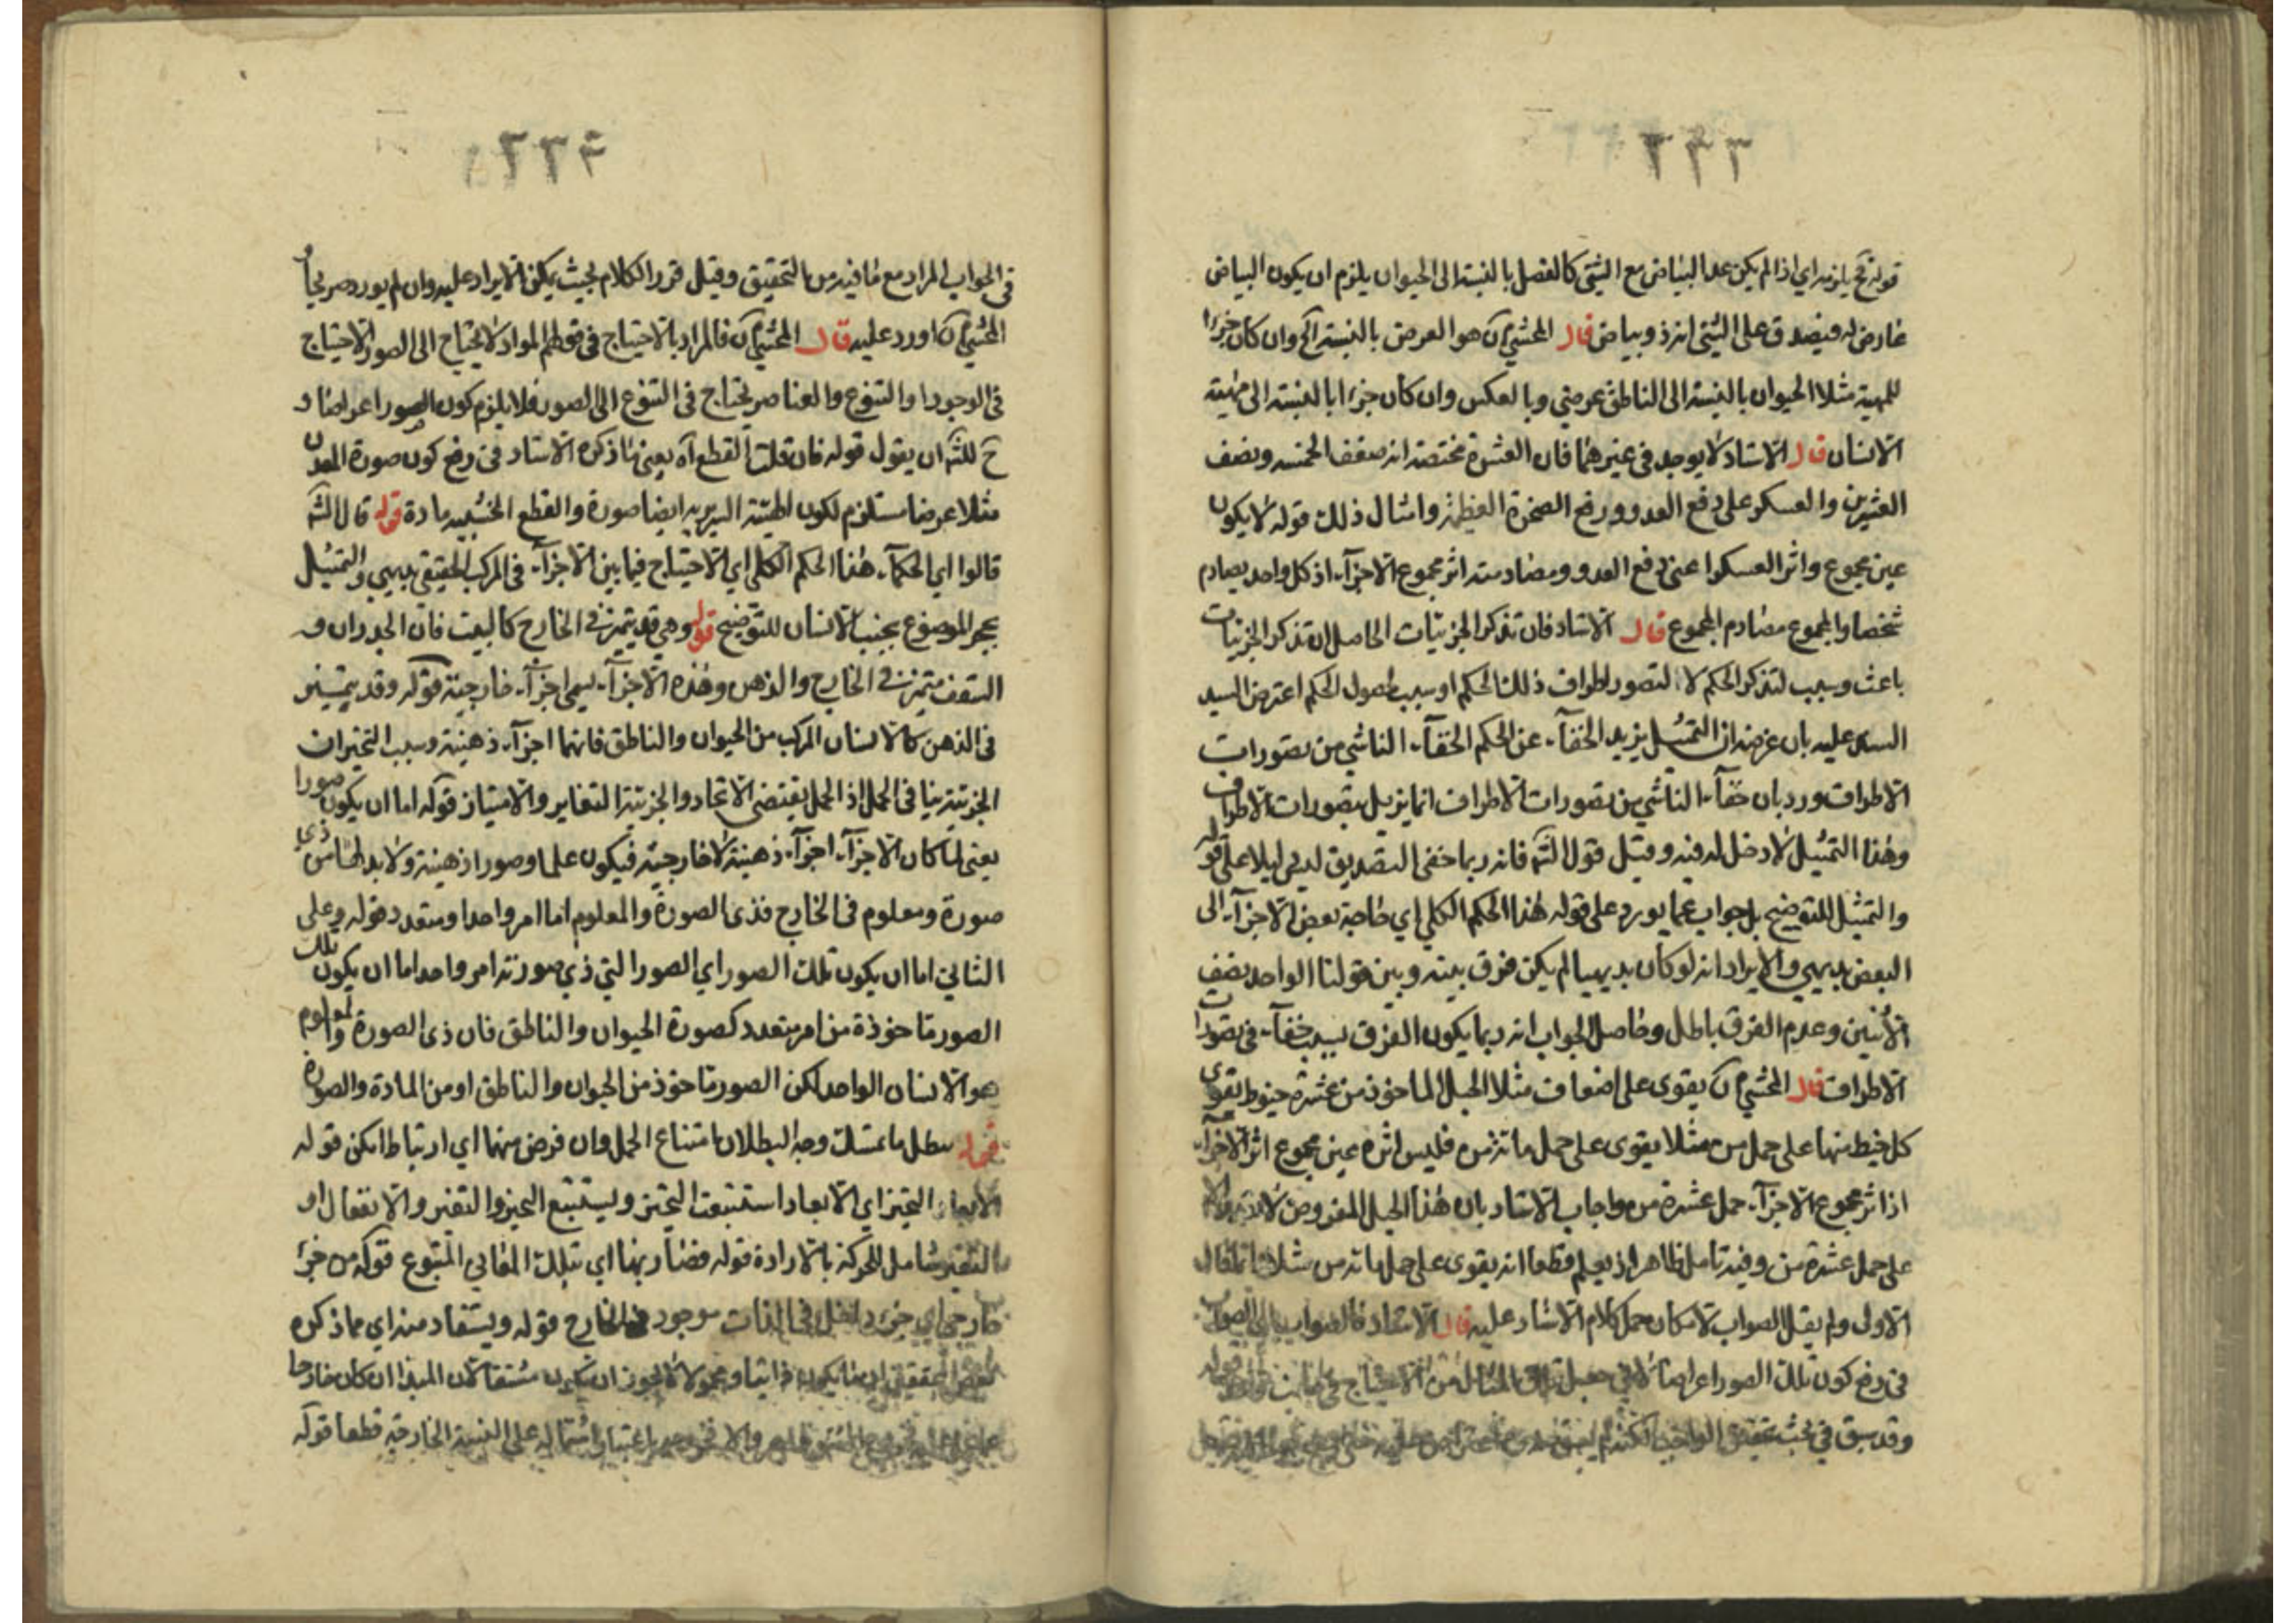 ٢٢٣
قوله فح يلزمه اي اذا لم يكن عد البياض مع الشئ كالفصل بالنسبة الى الحيوان يلزم ان يكون البياض
عارض له فيصدق على الشئ انه ذو بياض قال المحشي آن هو العرض بالنسبة الخ وان كان جزءا
للمهية مثلا الحيوان بالنسبة الى الناطق عرضي وبالعكس وان كان جزءا بالنسبة الى مهية
الانسان قال الاستاد لا يوجد في غيرهما فان العشرة مختصة انه ضعف الخمسه ونصف
العشرين والعسكر على دفع العدو ورفع الصخرة العظيمة وامثال ذلك قوله لا يكون
عين مجموع واثر العسكر اعنى دفع العدو ومضادمته اثر مجموع الاجزآء اذ كل واحد يصادم
شخصا والمجموع مصادم المجموع قال الاستاد فان تذكر الجزئيات الحاصل ان تذكر الجزئيات
باعث وسبب لتذكر الحكم لا لتصور اطراف ذلك الحكم او سبب لحصول الحكم اعترض السيد
السند عليه بان عرضه ان التمثيل يزيد الخفآء عن الحكم الخفآء الناشي من تصورات
الاطراف ورد بان خفآء الناشي من تصورات الاطراف انما يزيل بتصورات الاطراف
وهذا التمثيل لا دخل له فيه وقيل قول الشه فانه ربما خفى التصديق لبديهي ليلا على قوله
والتمثيل للتوضيح بل جواب عما يورد على قوله هذا الحكم الكلي اي حاجة بعض الاجزآء الى
البعض بديهي والايراد انه لو كان بديهيا لم يكن فرق بينه وبين قولنا الواحد نصف
الاثنين وعدم الفرق باطل وحاصل الجواب انه ربما يكون الفرق بسبب خفآء فى تصورات
الاطراف قال المحشي آن يقوى على اضعاف مثلا الحبل الماخوذ من عشرة خيوط يقوى
كل خيط منها على حمل من مثلا يقوى على حمل مائة من فليس اثره عين مجموع اثر الاجزآء
اذ اثر مجموع الاجزآء حمل عشرة من واجاب الاستاد بان هذا الحبل المفروض
على حمل عشرة من وفيه تامل ظاهر اذ يعلم قطعا انه يقوى على حمل مائة من مثلا
الاولى ولم يقل الصواب لامكان حمل كلام الاستاد عليه قال الاستاد فالصواب
فى دفع كون تلك الصور اعراضا لا فى
وقد سبق فى بحث تحقيق الواجب
٢٢٤
فى الجواب المراد مع ما فيه من التحقيق وقيل قرر الكلام بحيث يمكن الايراد عليه وان لم يورد صريحا و
المحشي آن اورد عليه قال المحشي آن فالمراد بالاحتياج فى قولهم المواد لا تحتاج الى الصور الاحتياج
فى الوجود او التنوع والعناصر يحتاج فى التنوع الى الصور فلا يلزم كون الصور اعراضا و
ح للشه ان يقول قوله فان قلت القطع آه يعنى ما ذكره الاستاد فى دفع كون صورة المعدن
مثلا عرضا مستلزم لكون الهيئة السريريه ايضا صورة والقطع الخشبيه مادة قوله قال الشه
قالوا اي الحكمآء هذا الحكم الكلي اي الاحتياج فيما بين الاجزآء فى المركب الحقيقي بديهي والتمثيل
بحجر الموضوع بجنب الانسان للتوضيح قوله وهي قد يتميز فى الخارج كالبيت فان الجدران و
السقف متميزة فى الخارج والذهن وهذه الاجزآء يسمى اجزآء خارجية قوله وقد يتميز
فى الذهن كالانسان المركب من الحيوان والناطق فانهما اجزآء ذهنية وسبب
الجزئية ينافى الحمل اذ الحمل يقتضى الاتحاد والجزئية التغاير والامتياز قوله اما ان يكون صورا
يعنى لما كان الاجزآء اجزآء ذهنية لا خارجية فيكون علما وصورا ذهنية ولابد لها من ذى
صورة ومعلوم فى الخارج فذى الصورة والمعلوم اما امر واحد او متعدد قوله وعلى
الثاني اما ان يكون تلك الصور اي الصور التي ذي صورته امر واحد اما ان يكون تلك
الصور ماخوذة من امر متعدد كصورة الحيوان والناطق فان ذى الصورة والمعلوم
هو الانسان الواحد لكن الصور ماخوذ من الحيوان والناطق او من المادة والصورة
قوله بطل ما تمسك وجه البطلان امتناع الحمل وان فرض بينهما اي ارتباط امكن قوله
الابعاد التحيز اي الابعاد استتبعت التحيز ويستتبع التحيز والتغير والانفعال او
بالتغير شامل للحركة بالارادة قوله فصار بهذا اي بتلك المعاني المتبوع قوله من جزء
خارجي اي جزء داخل فى الذات موجود فى الخارج قوله ويستفاد منه اي مما ذكره
بعض المحققين ان ما يكون ذاتيا ومحمولا لا يجوز ان يكون مشتقا لان المبدا ان كان خارجا
باعتبار اشتماله على النسبة الخارجية قطعا قوله